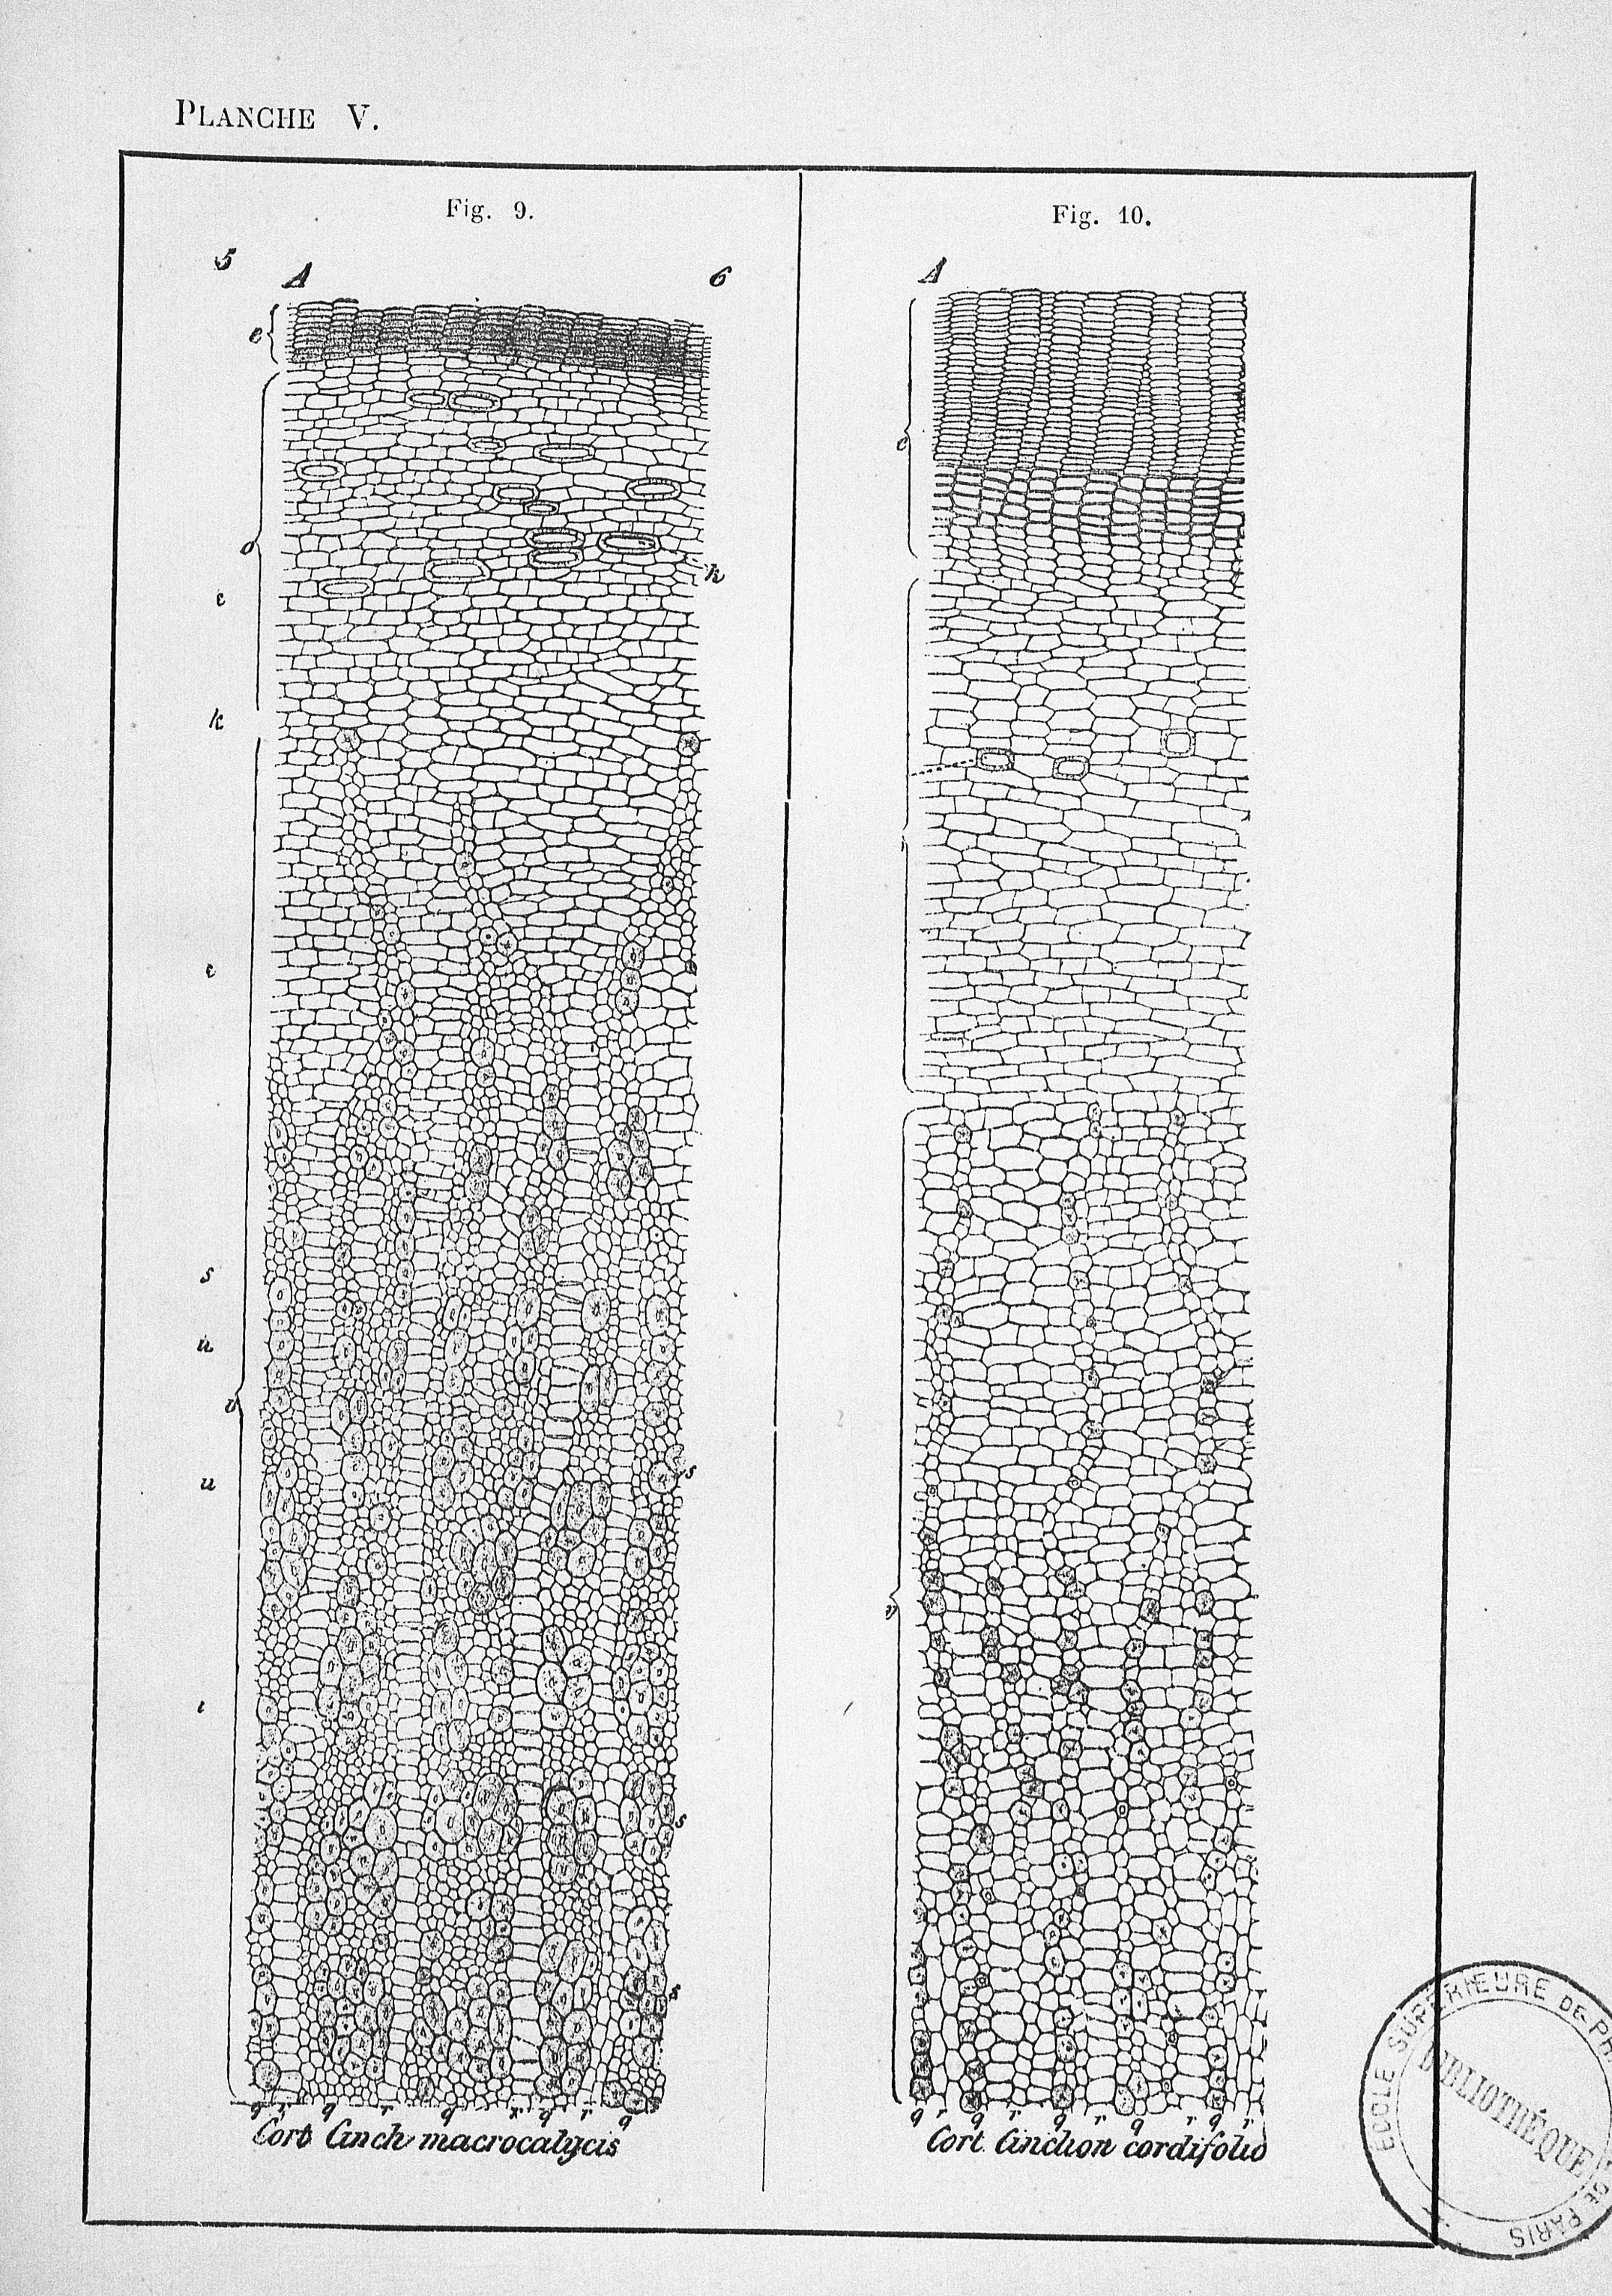 PLANCHE V.
Fig. 9.
5 A 6
e
o
k
c
k
c
s
u
v
u
s
s
s
q r q r q r q r q
Cort Cinch macrocalycis
Fig. 10.
A
e
v
q r q r q r q r q r
Cort. Cinchon cordifolio
ÉCOLE SUPÉRIEURE DE PH
BIBLIOTHÈQUE
DE PARIS